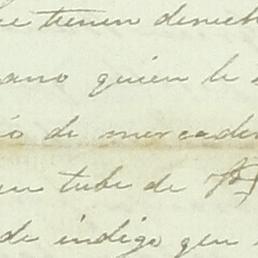 tienen derech
ano quien le
de mercader
tube de
de indigo que